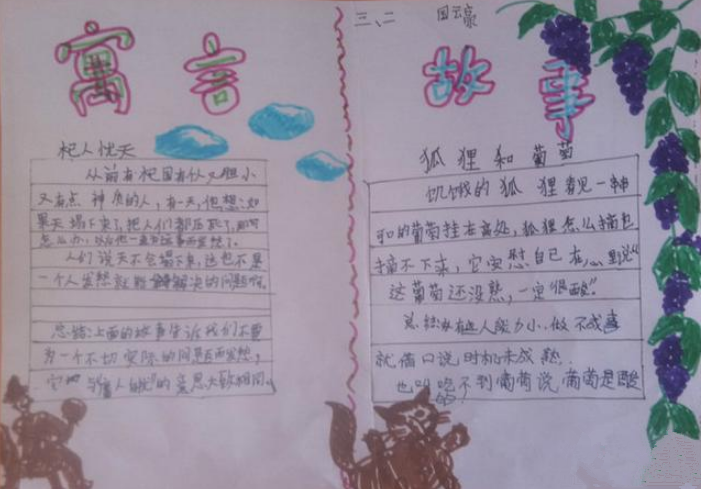 三、二
寓言
故事
杞人忧天
从前有杞国有位又胆小
又有点神质的人,有一天,他想:如
果天塌下来了,把人们都压死了,那可
怎么办,以后他一直为这事而发愁了。
人们说天不会塌下来,这也不是
一个人发愁就能解决的问题啊。
总结:上面的故事告诉我们不要
为一个不切实际的问题而发愁,
它与"庸人自扰"的意思大致相同。
狐狸和葡萄
饥饿的狐狸看见一串
的葡萄挂在高处,狐狸怎么摘也
摘不下来,它安慰自己在心里说"
这葡萄还没熟,一定很酸"。
总结:有些人能力小、做不成事
就借口说时机未成熟.
也叫吃不到葡萄说葡萄是酸
的.